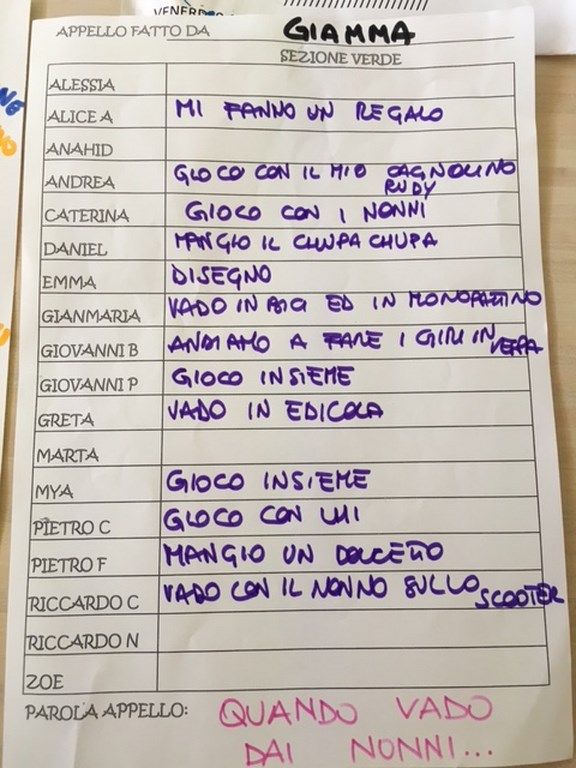 VENERDI
APPELLO FATTO DA GIAMMA
SEZIONE VERDE
ALESSIA
ALICE A MI FANNO UN REGALO
ANAHID
ANDREA GIOCO CON IL MIO CAGNOLINO
RUDY
CATERINA GIOCO CON I NONNI
DANIEL MANGIO IL CHUPA CHUPA
EMMA DISEGNO
GIANMARIA VADO IN BICI ED IN MONOPATTINO
GIOVANNI B ANDIAMO A FARE I GIRI IN
VESPA
GIOVANNI P GIOCO INSIEME
GRETA VADO IN EDICOLA
MARTA
MYA GIOCO INSIEME
PIETRO C GIOCO CON LUI
PIETRO F MANGIO UN DOLCETTO
RICCARDO C VADO CON IL NONNO SULLO
SCOOTER
RICCARDO N
ZOE
PAROLA APPELLO: QUANDO VADO
DAI NONNI...